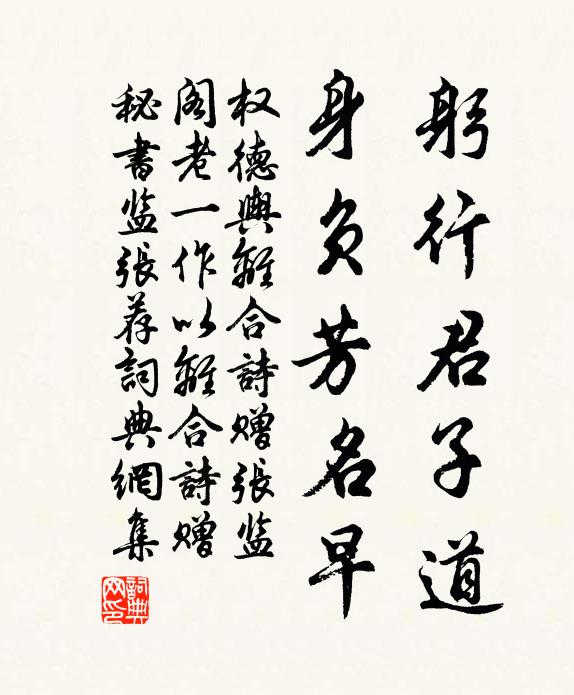 躬行君子道
身负芳名早
权德輿離合詩赠張监
阁老一作以離合詩赠
秘書监張荐詞典網集
詞典網印